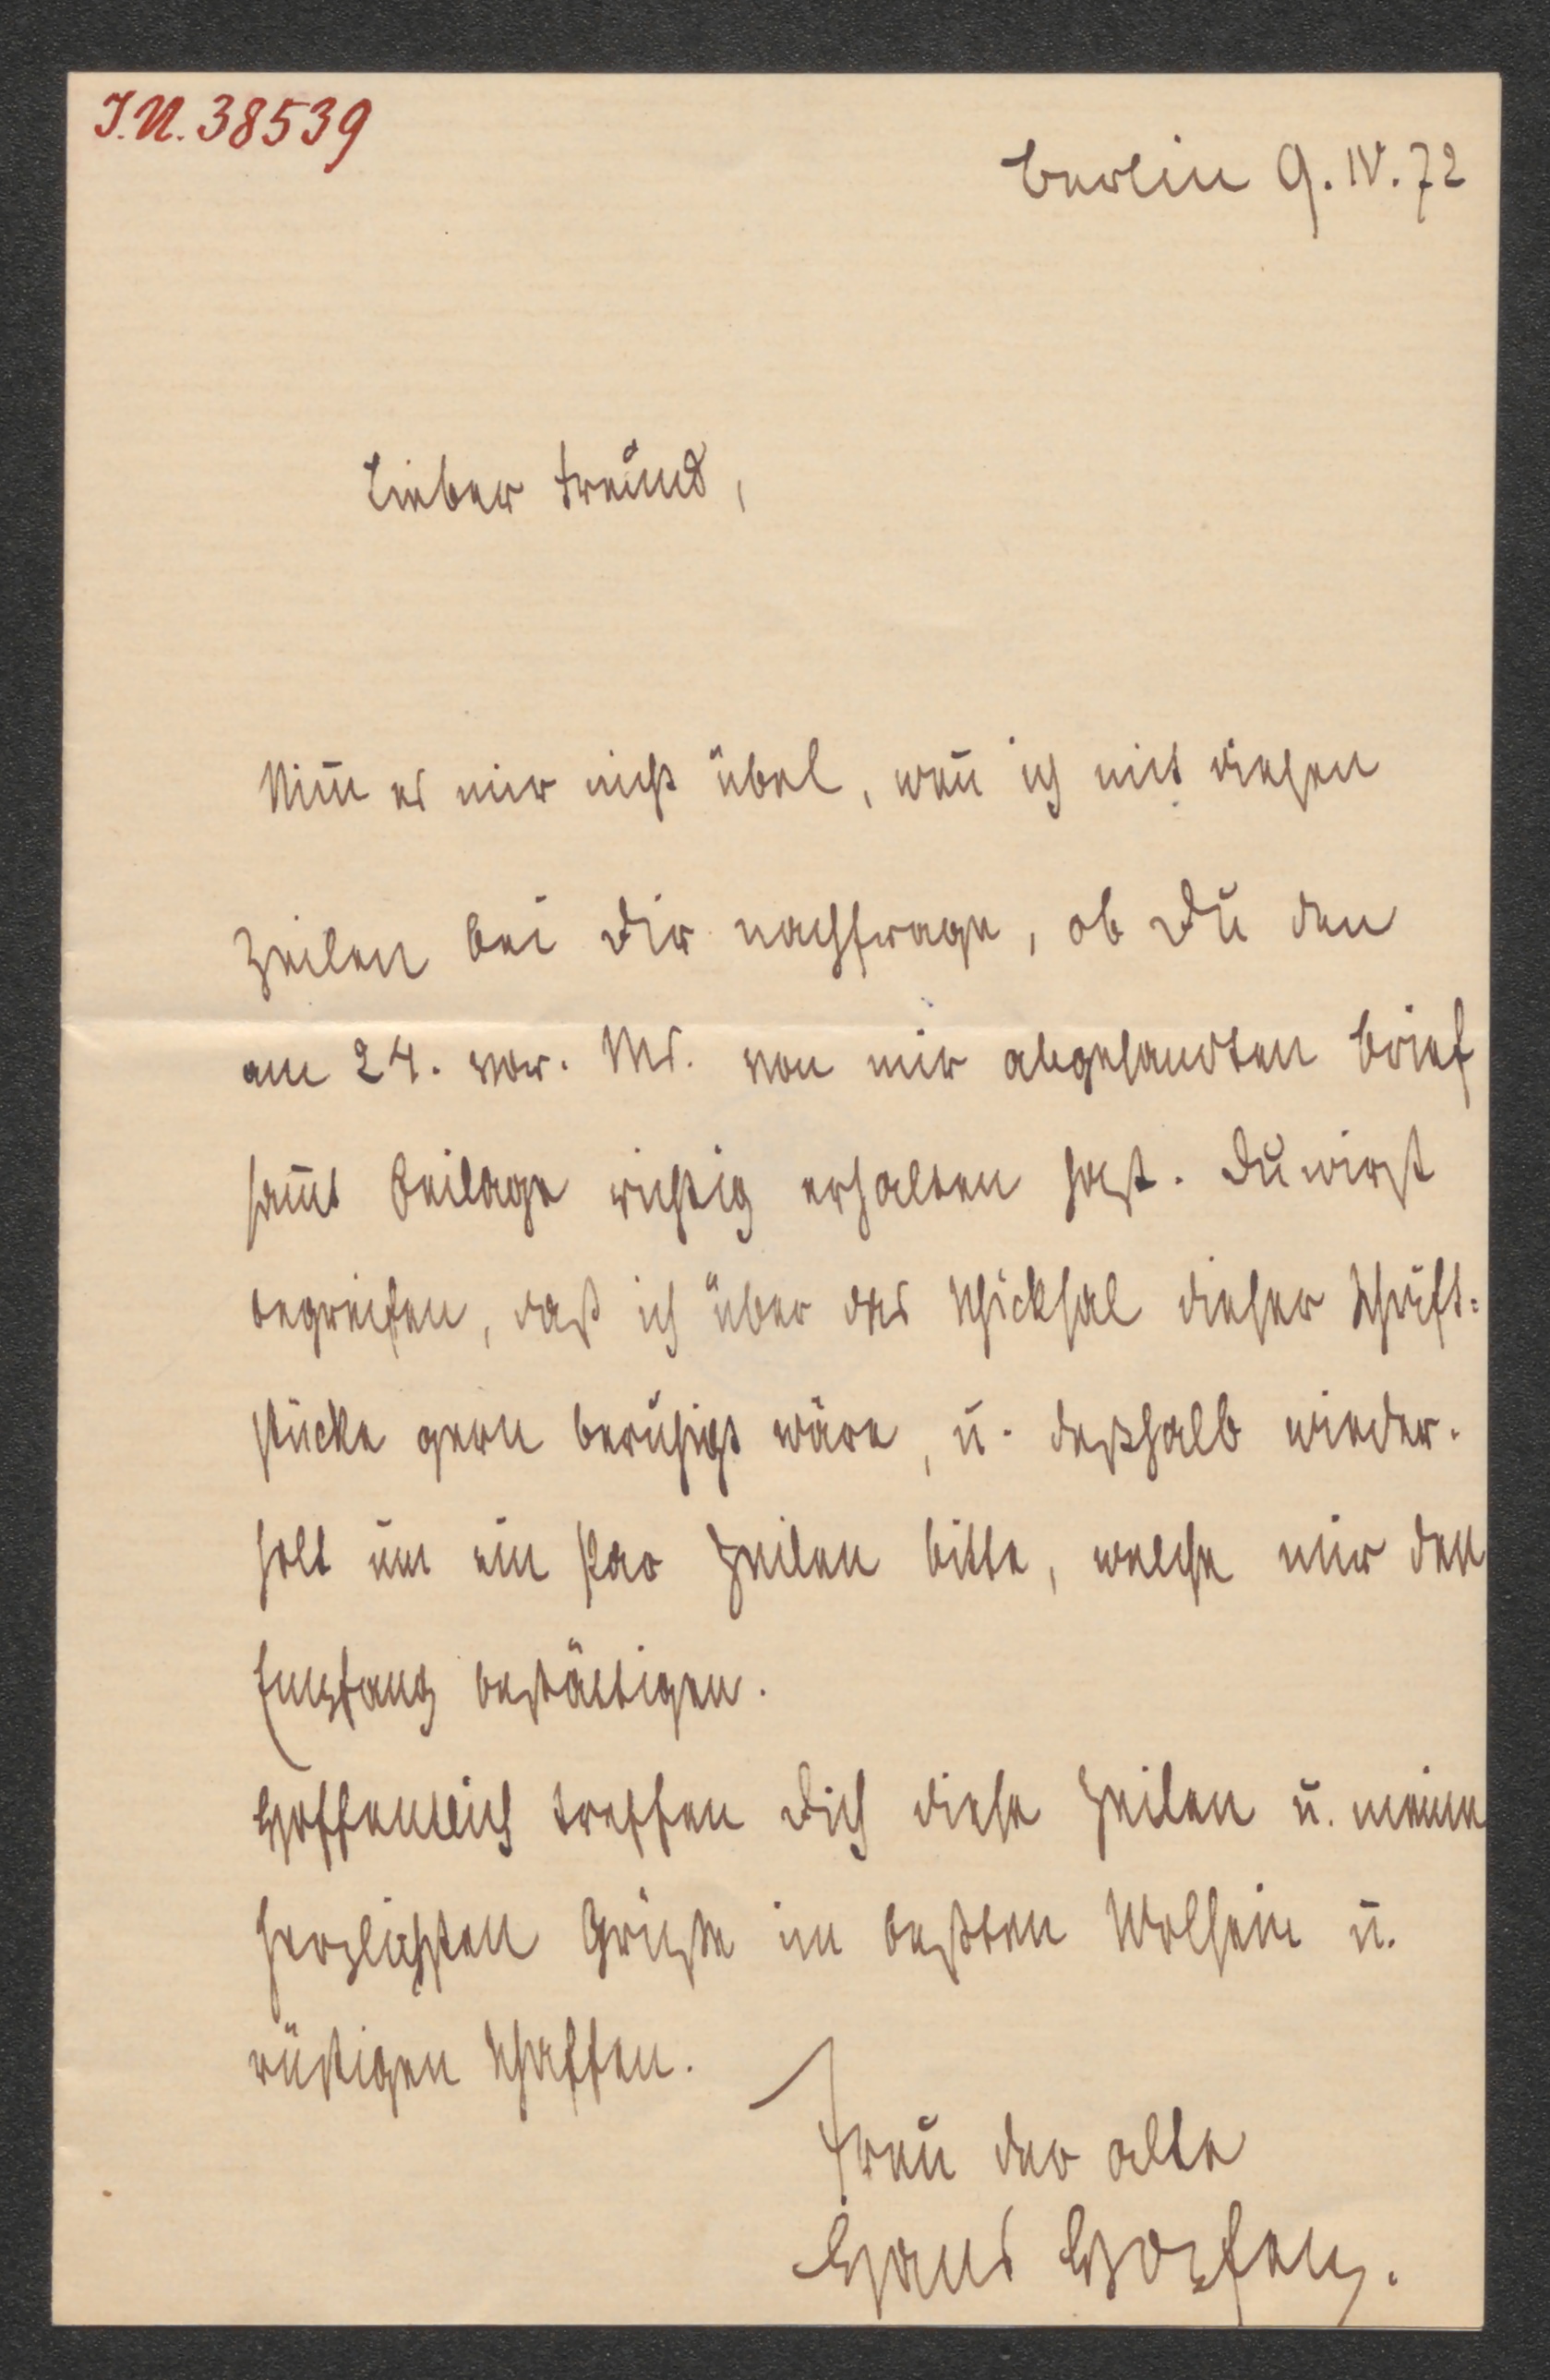 I.N. 38539
Berlin 9. IV. 72
Lieber Freund,
Nim̄ es mir nicht übel, wen̄ ich mit diesen
Zeilen bei Dir nachfrage, ob Du den
am 24. vor. Mts. von mir abgesandten Brief
sam̄t Beilage richtig erhalten hast. Du wirst
begreifen, daß ich über das Schicksal dieser Schrift-
stücke gern beruhigt wäre, u. deßhalb wieder-
holt um ein Paar Zeilen bitte, welche mir den
Empfang bestättigen.
Hoffentlich treffen Dich diese Zeilen u. meine
herzlichsten Grüße im beßten Wolsein u.
rüstigen Schaffen.
Treu der alte
Hans Hopfen.